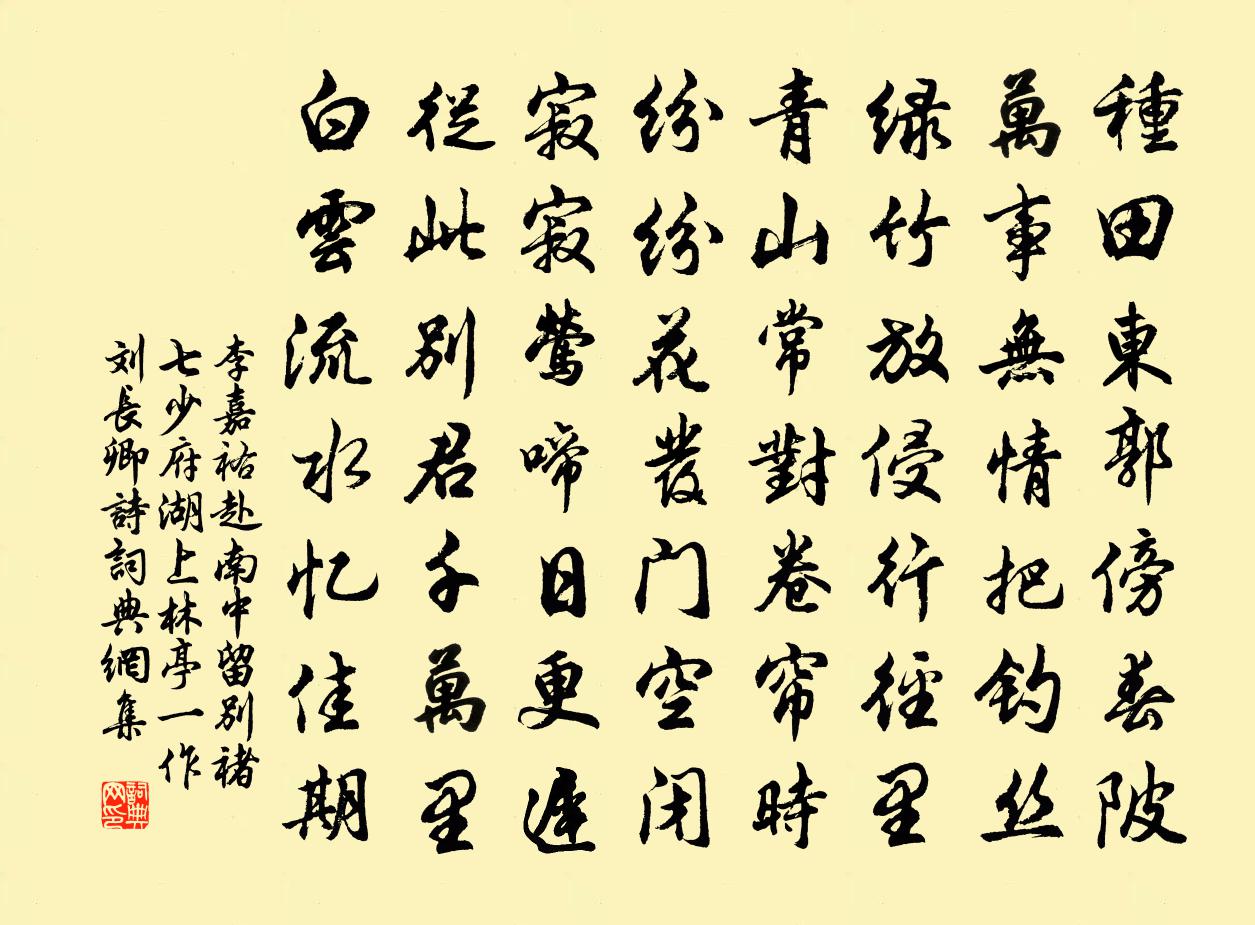 種田東郭傍春陂
萬事無情把釣丝
绿竹放侵行徑里
青山常對卷帘時
纷纷花發门空闭
寂寂鶯啼日更遲
從此别君千萬里
白雲流水忆佳期
李嘉祐赴南中留别褚
七少府湖上林亭一作
刘長卿詩詞典網集
詞典
网印